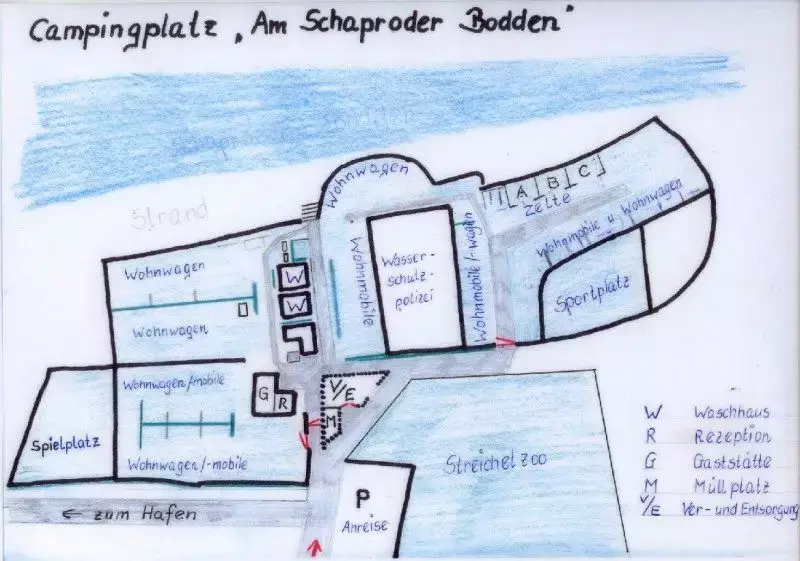 Campingplatz „Am Schaproder Bodden"
Strand
Wohnwagen
A B C
Zelte
Wohnmobile u. Wohnwagen
Wohnwagen
Wohnwagen
W
W
Wohnmobile
Wasser-
schutz-
polizei
Wohnmobile/-wagen
Sportplatz
Wohnwagen/mobile
Wohnwagen/-mobile
Spielplatz
G
R
V/E
M
Streichelzoo
← zum Hafen
P
Anreise
W Waschhaus
R Rezeption
G Gaststätte
M Müllplatz
V/E Ver- und Entsorgung